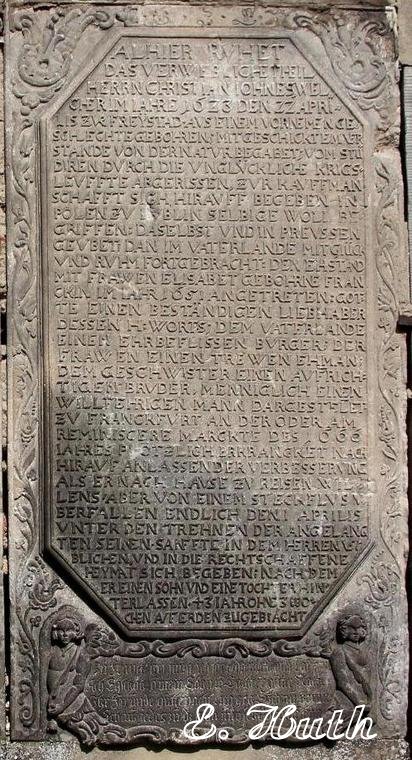 ALHIER RVHET
DAS VERWESLICHE THEIL
HERRN CHRISTIAN IOHNES WEL
CHER IM IAHRE 1623 DEN 22 APRI-
LIS ZVR FREYSTAD AVS EINEM VORNEMEN GE-
SCHLECHTE GEBOHREN: MIT GESCHICKTEM VER
STANDE VON DER NATVR BEGABET: VOM STV
DIREN DVRCH DIE VNGLVCKLICHE KRIGS-
LEVFFTE ABGERISSEN, ZVR KAVFFMAN
SCHAFFT SICH HIRAVFF BEGEBEN: IN
POLEN ZV LVBLIN SELBIGE WOLL BE
GRIFFEN: DASELBST VND IN PREVSSEN
GEVBET: DAN IM VATERLANDE MIT GLVCK
VND RVHM FORTGEBRACHT: DEN EHSTAND
MIT FRAWEN ELISABET GEBOHRNE FRAN
CKIN IM IAHR 1651 ANGETRETEN: GOT-
TE EINEN BESTÄNDIGEN LIEBHABER
DESSEN H: WORTS: DEM VATERLANDE
EINEN EHRBEFLISSEN BVRGER: DER
FRAWEN EINEN TREWEN EHMAN:
DEM GESCHWISTER EINEN AVFRICH-
TIGEN BRVDER, MENNIGLICH EINEN
WILLFEHRIGEN MANN DARGESTELET
ZV FRANCKFVRT AN DER ODER AM
REMINISCERE MARCKTE DES 1666
IAHRES PLOTZLICH ERKRANCKET NACH
HIRAVF ANLASSENDER VERBESSERVNG
ALS ER NACH HAVSE ZV REISEN WIL-
LENS: ABER VON EINEM STECKFLVS V-
BERFALLEN ENDLICH DEN 1 APRILIS
VNTER DEN TREHNEN DER ANGELANG
TEN SEINEN SANFFTE IN DEM HERREN
BLICHEN, VND IN DIE RECHTSCHAFFENE
HEYMAT SICH BEGEBEN: NACH DEM
ER EINEN SOHN VND EINE TOCHTER HIN
TERLASSEN 43 IAHR OHNE 3 WO-
CHEN AVF ERDEN ZVGEBRACHT
E. Huth